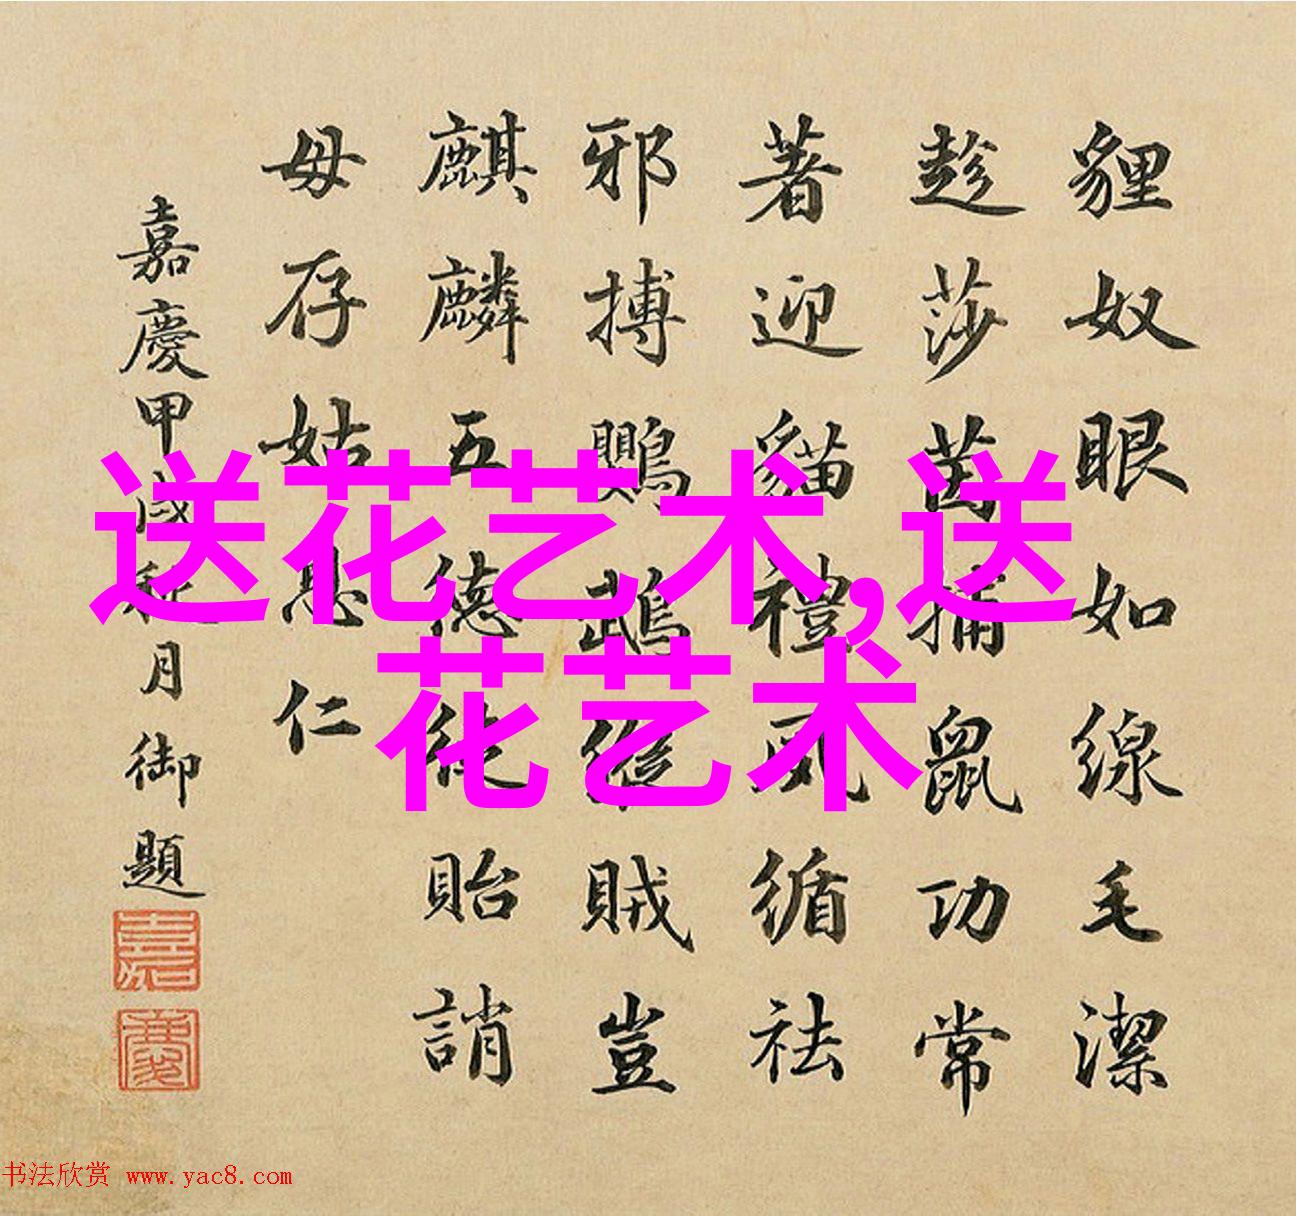 貍奴眼如線毛潔
趁莎茵捕鼠功常
著迎貓禮夙循祛
邪搏鸚鵡縱賊豈
麒麟五德徒貽誚
毋存姑息仁
嘉慶甲戌秋月御題
嘉
慶
送花艺术,送
花艺术
书法欣赏 www.yac8.com